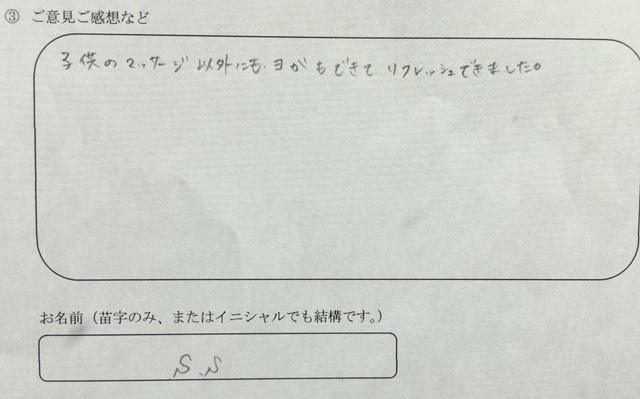 ③ ご意見ご感想など
子供のマッサージ以外にも、ヨガもできてリフレッシュできました。
お名前（苗字のみ、またはイニシャルでも結構です。）
S.S